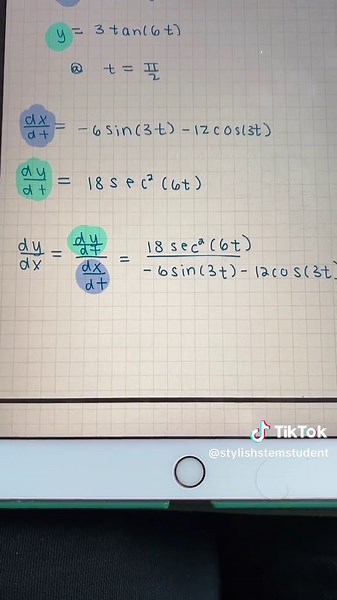 y = 3 tan(6t)
@ t = π/2
dx/dt = -6 sin(3t) - 12 cos(3t)
dy/dt = 18 sec² (6t)
dy/dx = dy/dt / dx/dt = 18 sec² (6t) / -6 sin(3t) - 12 cos(3t)
TikTok
@stylishstemstudent